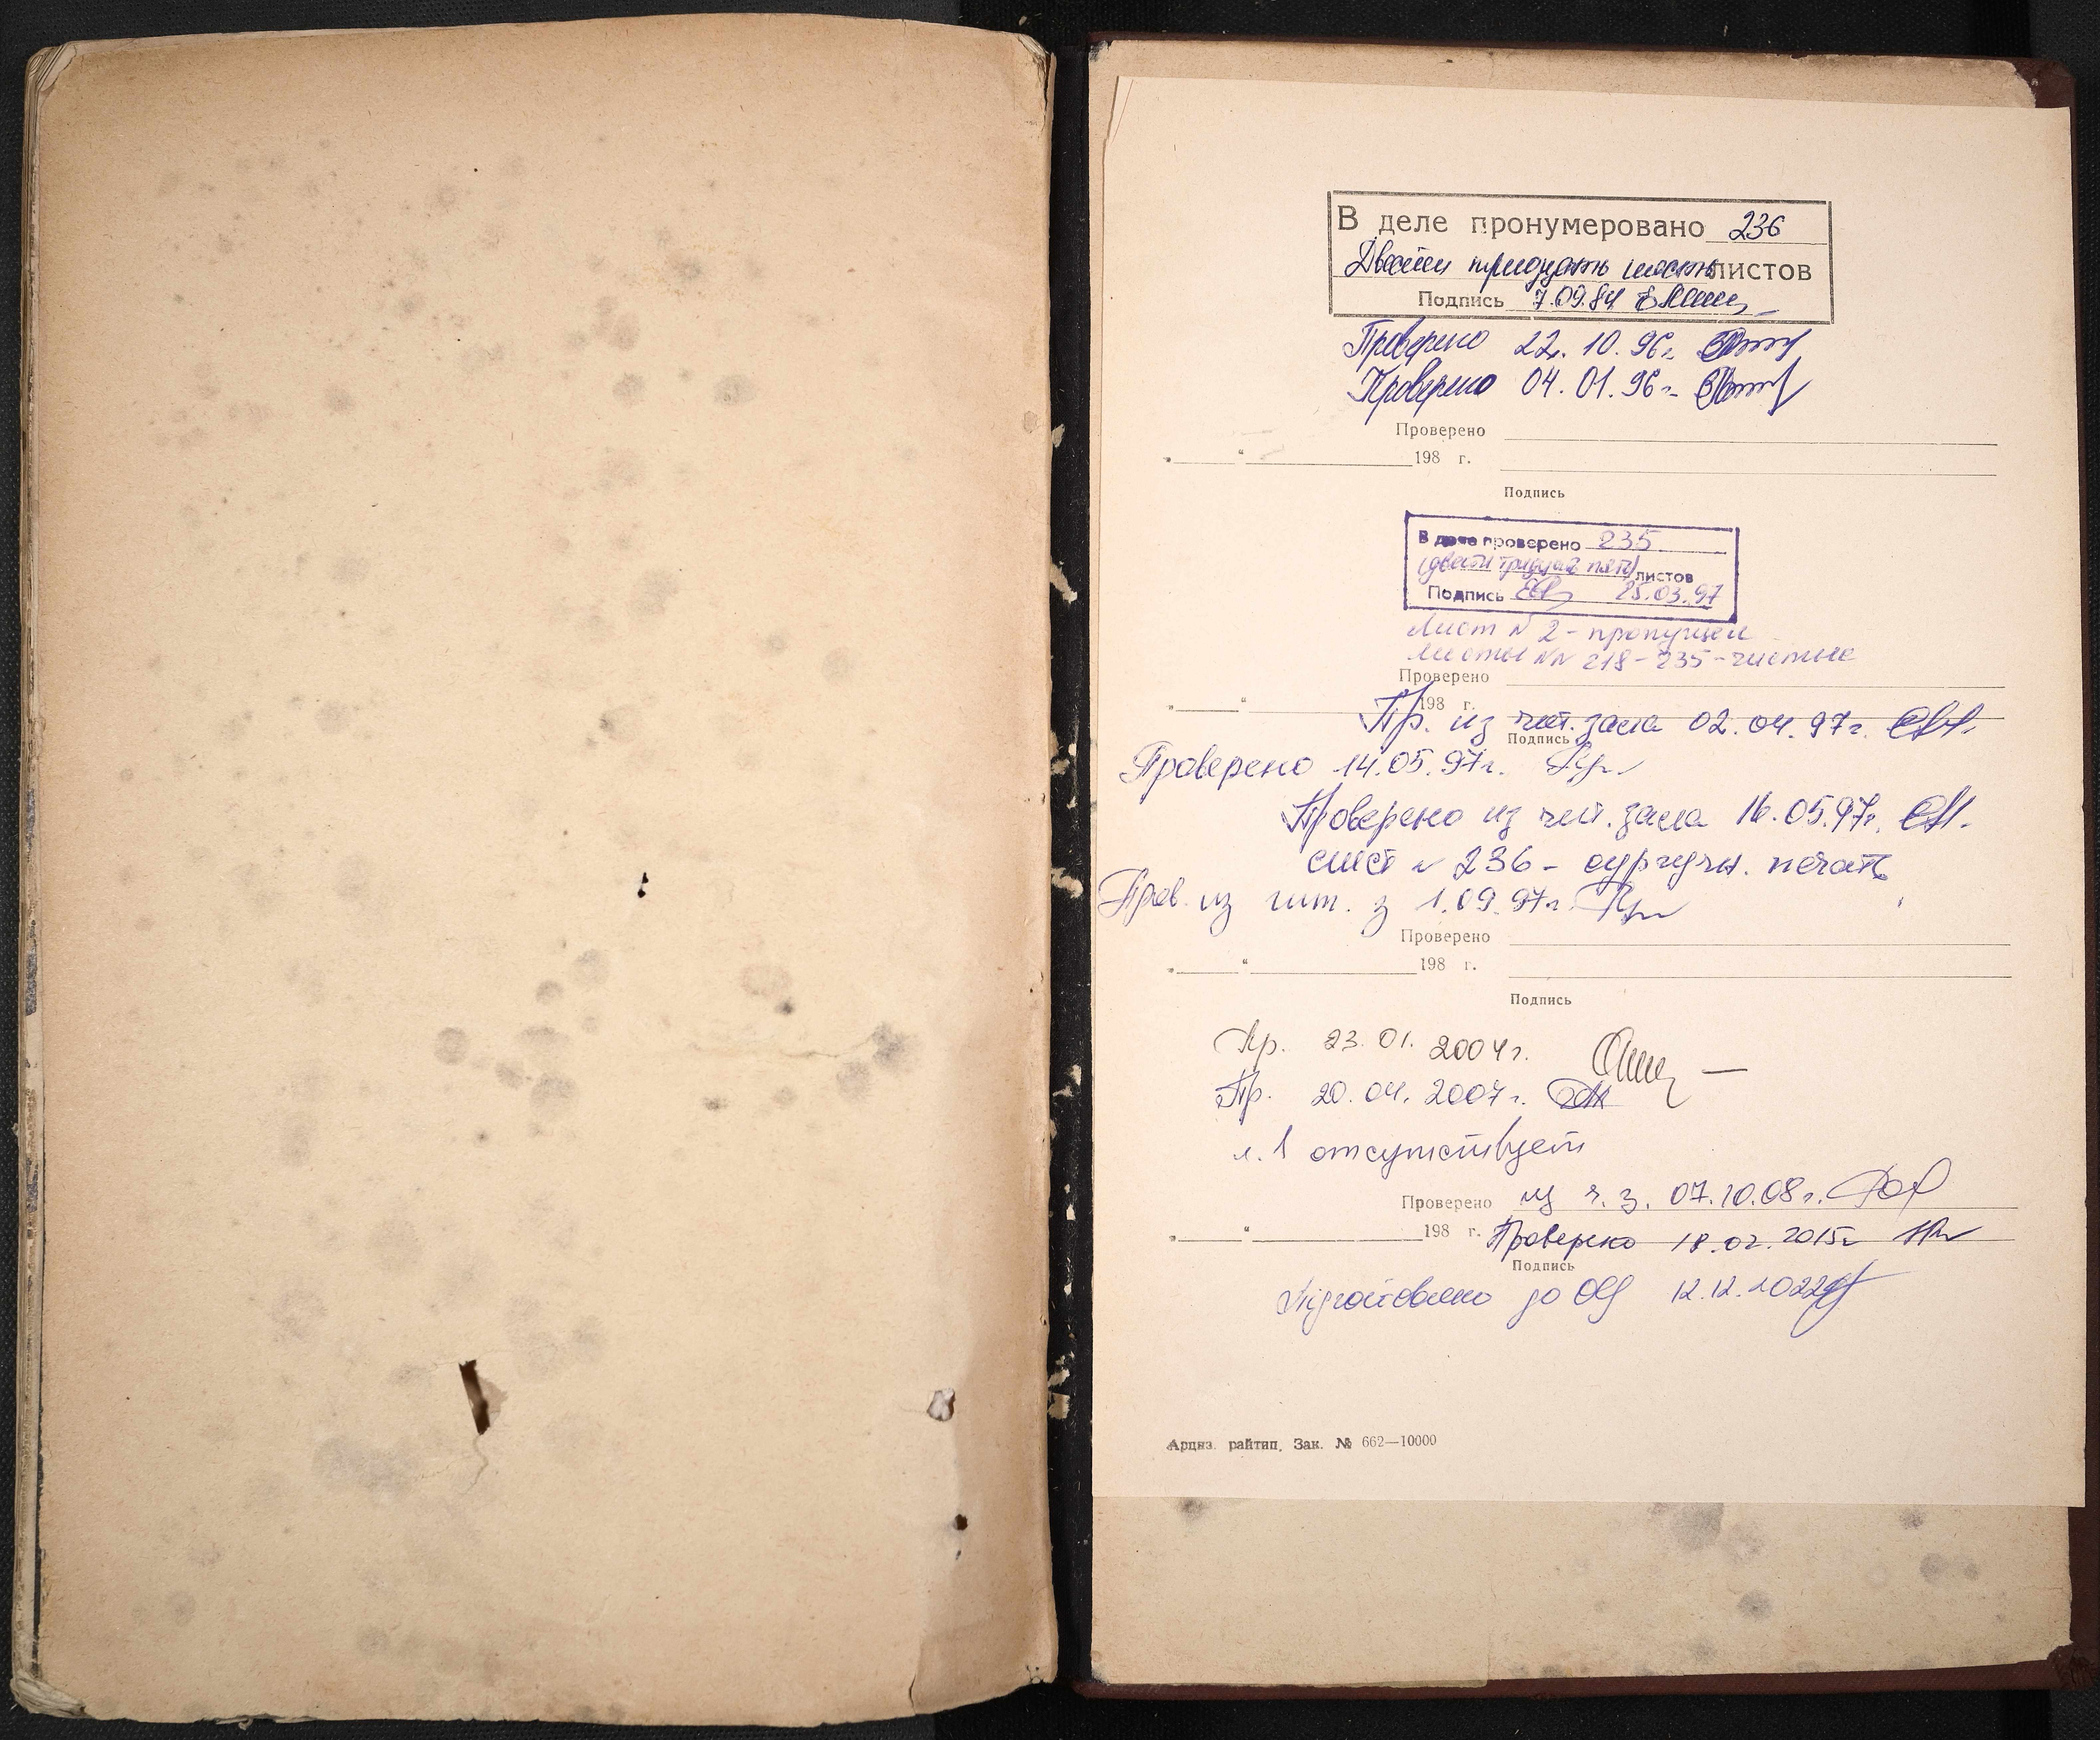 В деле пронумеровано 236
Двести тридцать шесть листов
Подпись 7.09.84
Проверено 22.10.96г.
Проверено 04.01.96г.
Проверено
„ “ 198 г.
Подпись
В деле проверено 235
(двести тридцать пять) листов
Подпись 25.03.97
Лист N 2 - пропущен
листы NN 218-235-чистые
Проверено
„ “ 198 г.
Пр. из чит. зала 02.04.97г.
Подпись
Проверено 14.05.97г.
Проверено из чит. зала 16.05.97г.
лист N 236 - сургучн. печать
Пров. из чит. з 1.09.97г.
Проверено
„ “ 198 г.
Подпись
Пр. 23.01.2004г.
Пр. 20.04.2007г.
л. 1 отсутствует
Проверено из ч.з. 07.10.08г.
„ “ 198 г. Проверено 18.02.2015г
Подпись
Підготовлено до 12.12.2022
Арциз. райтип. Зак. № 662—10000